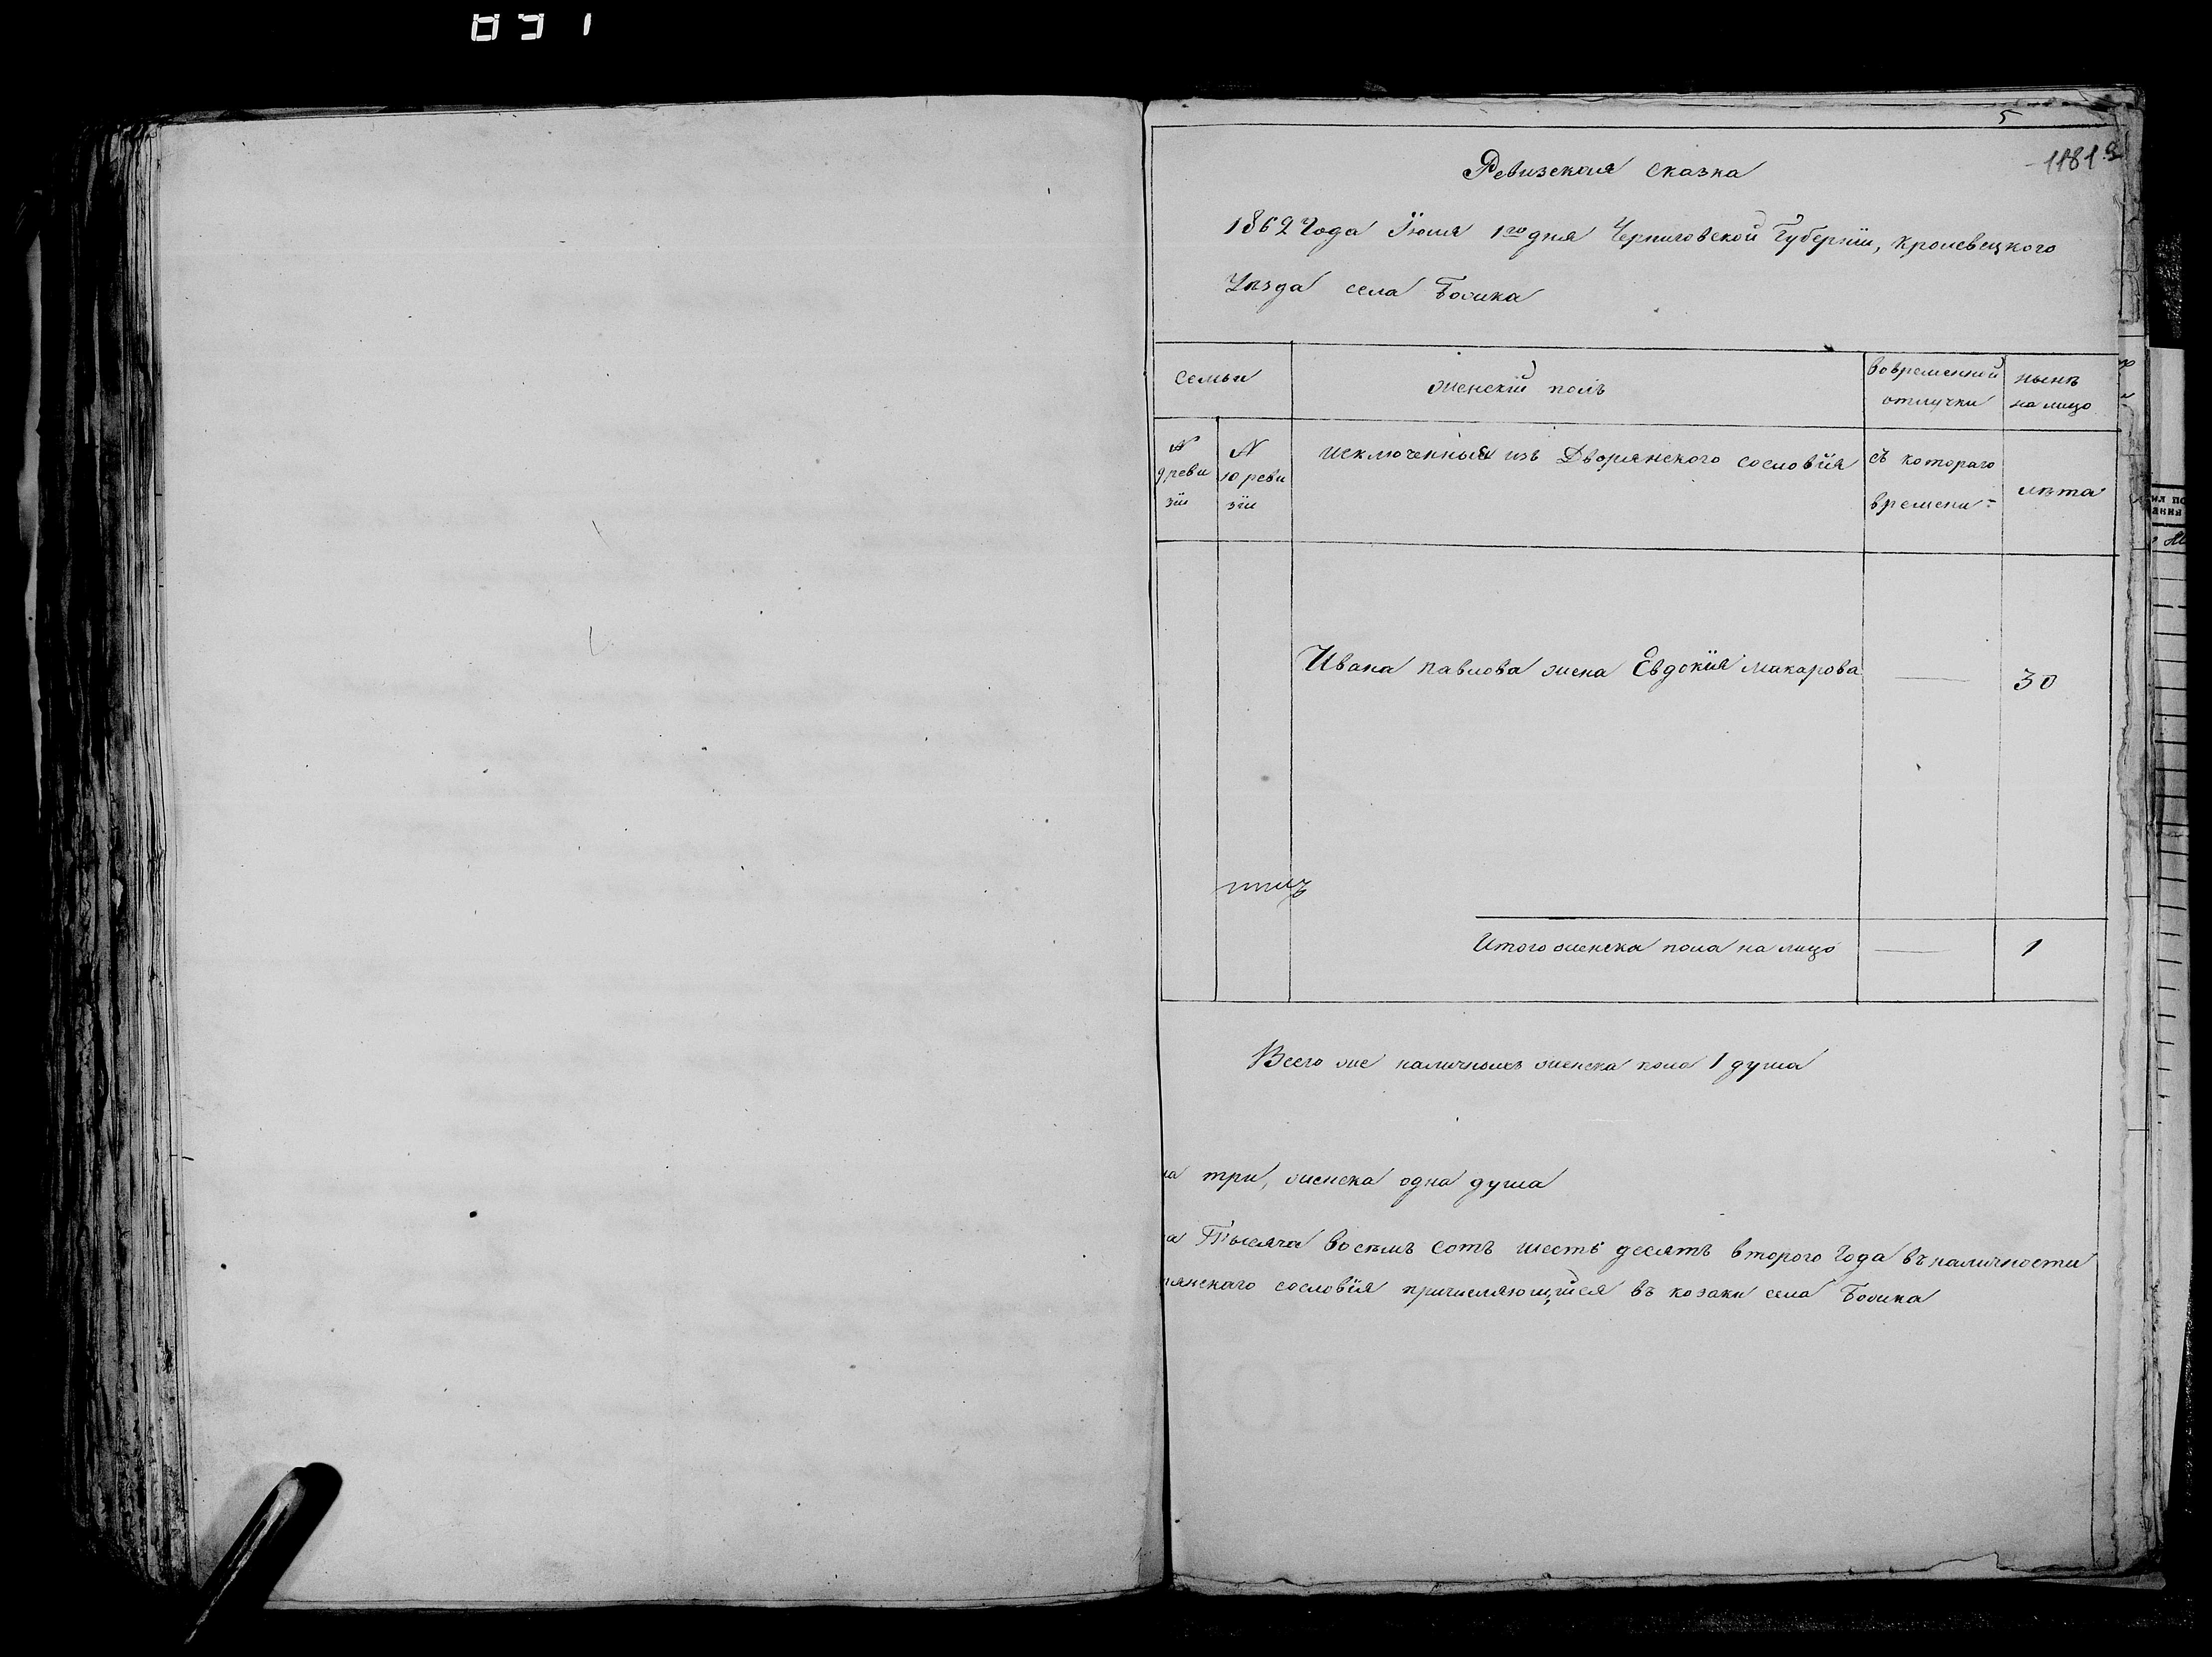 891
5
1181
Ревизская сказка
1862 Года Іюля 1го дня Черниговской Губерніи, Кролевецкого
Уѣзда села Божка
семьи
женскій полъ
вовременной отлучки
нынѣ на лицо
N 9 ревизіи
N 10 ревизіи
исключенный изъ Дворянского сословія
съ котораго времени
лѣта
Ивана Павлова жена Евдокія Макарова — 30
Итого женска пола на лицо — 1
Всего же наличныхъ женска пола 1 душа
ла три, женска одна душа
а Тысяча восемь сотъ шесть десятъ второго Года въ наличности
рянскаго сословія причисляющійся въ козаки села Божка